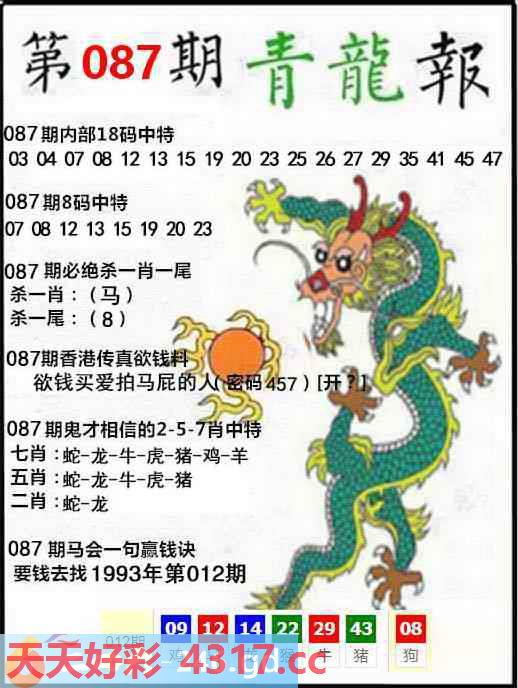 第087期青龍報
087期内部18码中特
03 04 07 08 12 13 15 19 20 23 25 26 27 29 35 41 45 47
087期8码中特
07 08 12 13 15 19 20 23
087期必绝杀一肖一尾
杀一肖：（马）
杀一尾：（8）
087期香港传真欲钱料
欲钱买爱拍马屁的人(密码457)[开？]
087期鬼才相信的2-5-7肖中特
七肖：蛇-龙-牛-虎-猪-鸡-羊
五肖：蛇-龙-牛-虎-猪
二肖：蛇-龙
087期马会一句赢钱诀
要钱去找1993年第012期
09 12 14 22 29 43 08
012期 鸡 龙 猴 牛 猪 狗
天天好彩 4317.cc